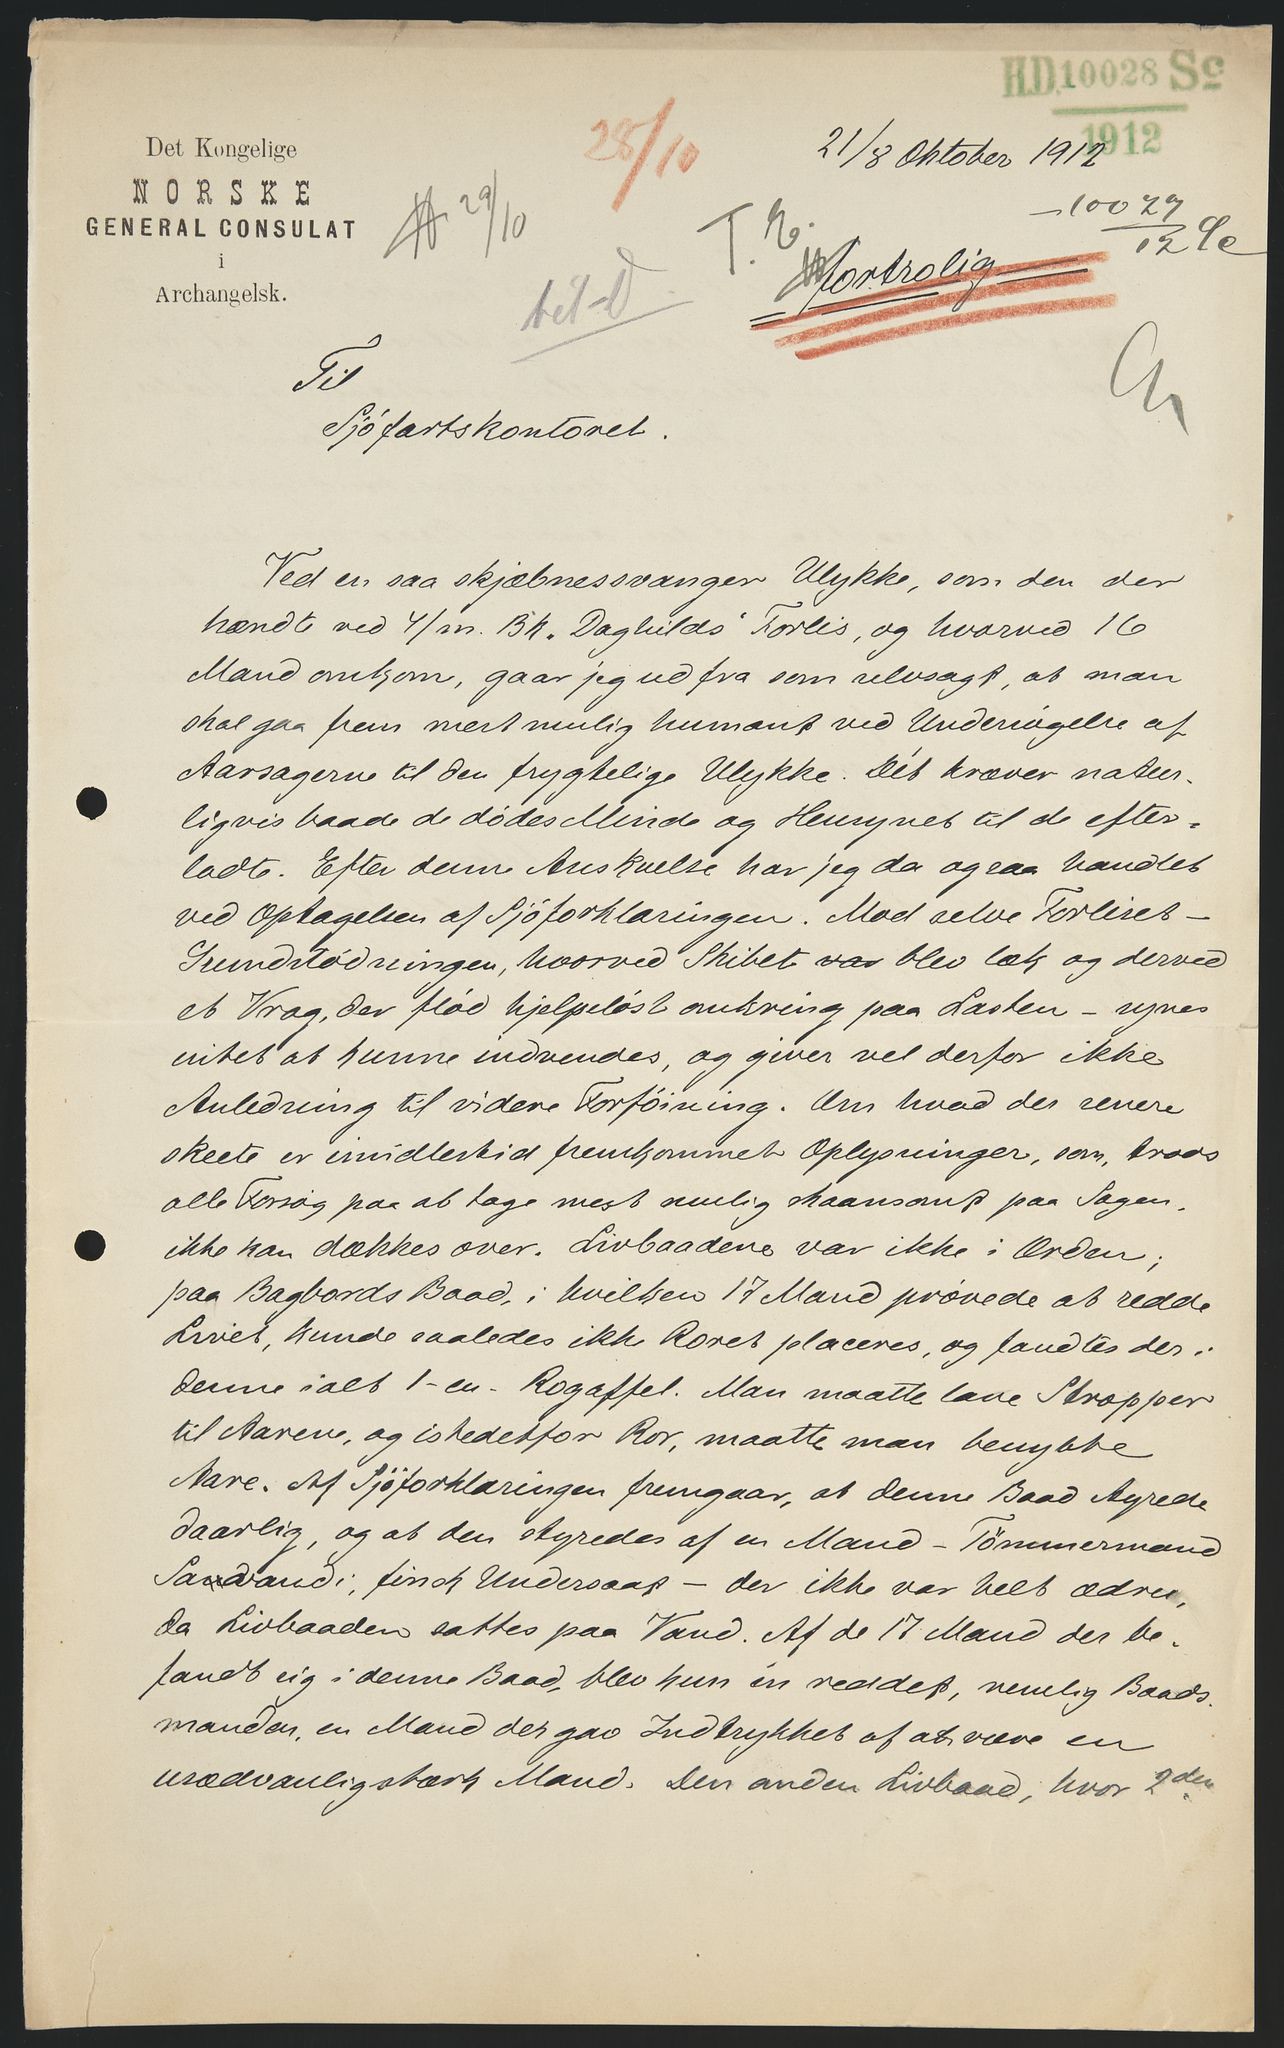 H.D. 10028 Sc
1912
Det Kongelige
NORSKE
GENERAL CONSULAT
i
Archangelsk.
28/10
29/10
21/8 Oktober 1912
10029
12 Sc
T. R.
Fortrolig
Til
Sjöfartskontoret.
Ved en saa skjæbnessvanger Ulykke, som den der
hændte ved 4/m. Bk. „Daghilds" Forlis, og hvorved 16
Mand omkom, gaar jeg ud fra som selvsagt, at man
skal gaa frem mest mulig humant ved Undersögelse af
Aarsagerne til den frygtelige Ulykke. Dét kræver natur-
ligvis baade de dödes Minde og Hensynet til de efter-
ladte. Efter denne Anskuelse har jeg da ogsaa handlet
ved Optagelsen af Sjöforklaringen. Mod selve Forliset –
Grundstödningen, hvorved Skibet var blev læk og derved
et Vrag, der flöd hjelpelöst omkring paa Lasten – synes
intet at kunne indvendes, og giver vel derfor ikke
Anledning til videre Forföining. Om hvad der senere
skeete er imidlertid fremkommet Oplysninger, som, trods
alle Forsög paa at tage mest mulig skaansomt paa Sagen,
ikke kan dækkes over. Livbaadene var ikke i Orden;
paa Bagbords Baad, i hvilken 17 Mand prövede at redde
Livet, kunde saaledes ikke Roret placeres, og fandtes der i
denne ialt 1-en- Rogaffel. Man maatte lave Stropper
til Aarene, og istedetfor Ror, maatte man benytte
Aare. Af Sjöforklaringen fremgaar, at denne Baad styrede
daarlig, og at den styredes af en Mand – Tömmermand
Sandvand i, finsk Undersaat – der ikke var helt ædru,
da Livbaaden sattes paa Vand. Af de 17 Mand der be-
fandt sig i denne Baad, blev kun én reddet, nemlig Baads-
manden, en Mand der gav Indtrykket af at være en
usædvanlig stærk Mand. Den anden Livbaad, hvor 2den